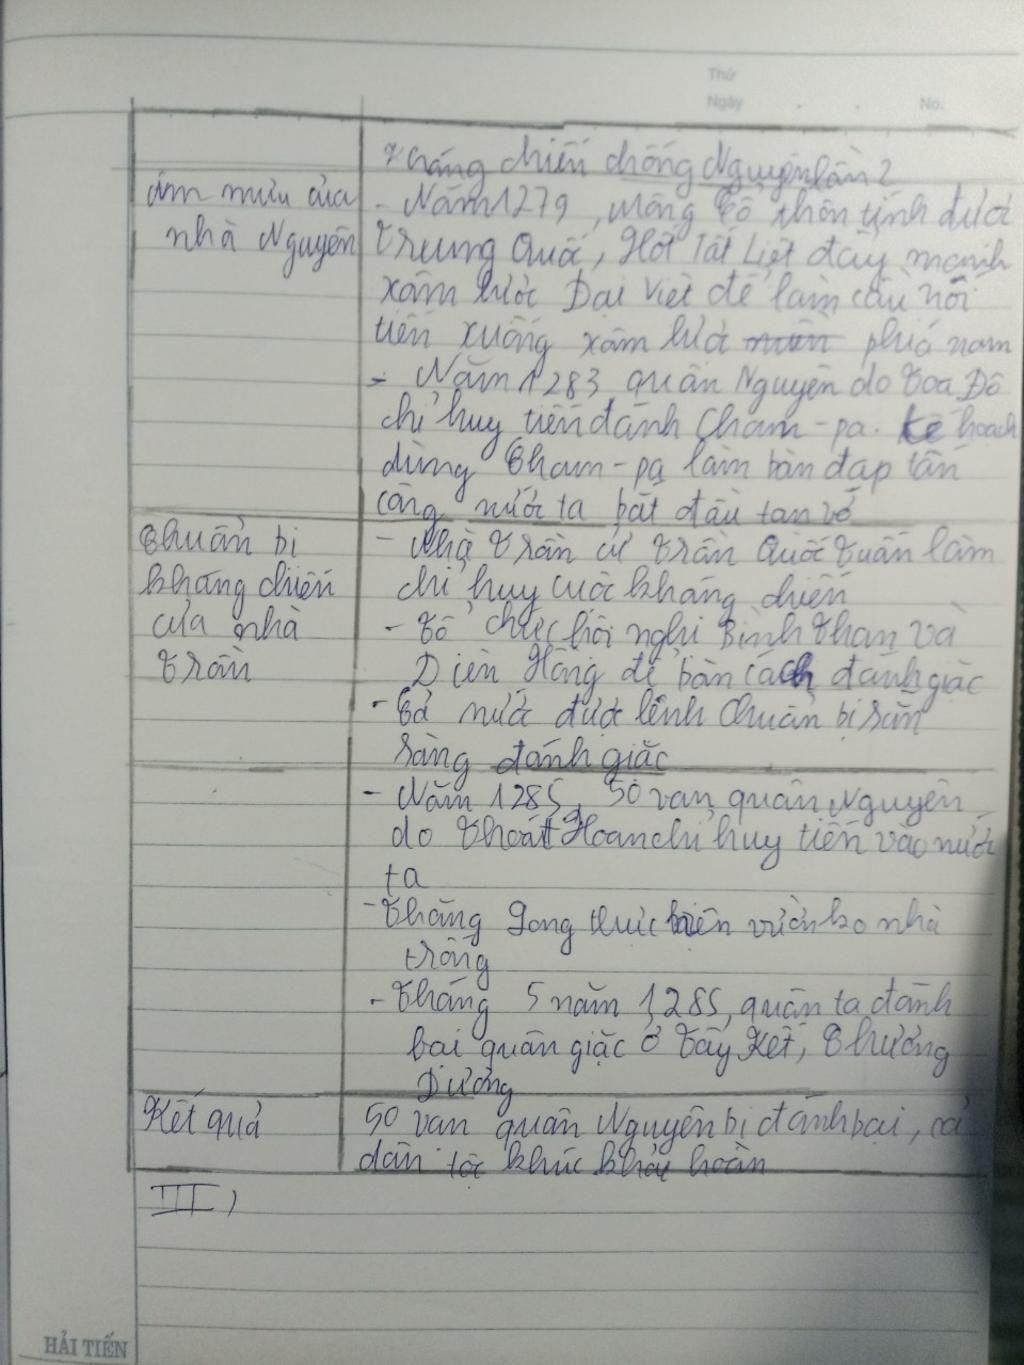 Thứ
Ngày No.
Kháng chiến chống Nguyên lần 2
Âm mưu của - Năm 1279, Mông Cổ thôn tính được
nhà Nguyên Trung Quốc, Hốt Tất Liệt đẩy mạnh
xâm lược Đại Việt để làm cầu nối
tiến xuống xâm lược miền phía nam
- Năm 1283 quân Nguyên do Toa Đô
chỉ huy tiến đánh Cham-pa. Kế hoạch
dùng Cham-pa làm bàn đạp tấn
công nước ta bắt đầu tan vỡ
Chuẩn bị - Nhà Trần cử Trần Quốc Tuấn làm
kháng chiến chỉ huy cuộc kháng chiến
của nhà - Tổ chức hội nghị Bình Than và
Trần Diên Hồng để bàn cách đánh giặc
- Cả nước được lệnh chuẩn bị sẵn
sàng đánh giặc
- Năm 1285, 50 vạn quân Nguyên
do Thoát Hoan chỉ huy tiến vào nước
ta
- Thăng Long thực hiện vườn ko nhà
trống
- Tháng 5 năm 1285, quân ta đánh
bại quân giặc ở Tây Kết, Chương
Dương
Kết quả 50 vạn quân Nguyên bị đánh bại, cả
dân tộc khúc khải hoàn
III,
HẢI TIẾN